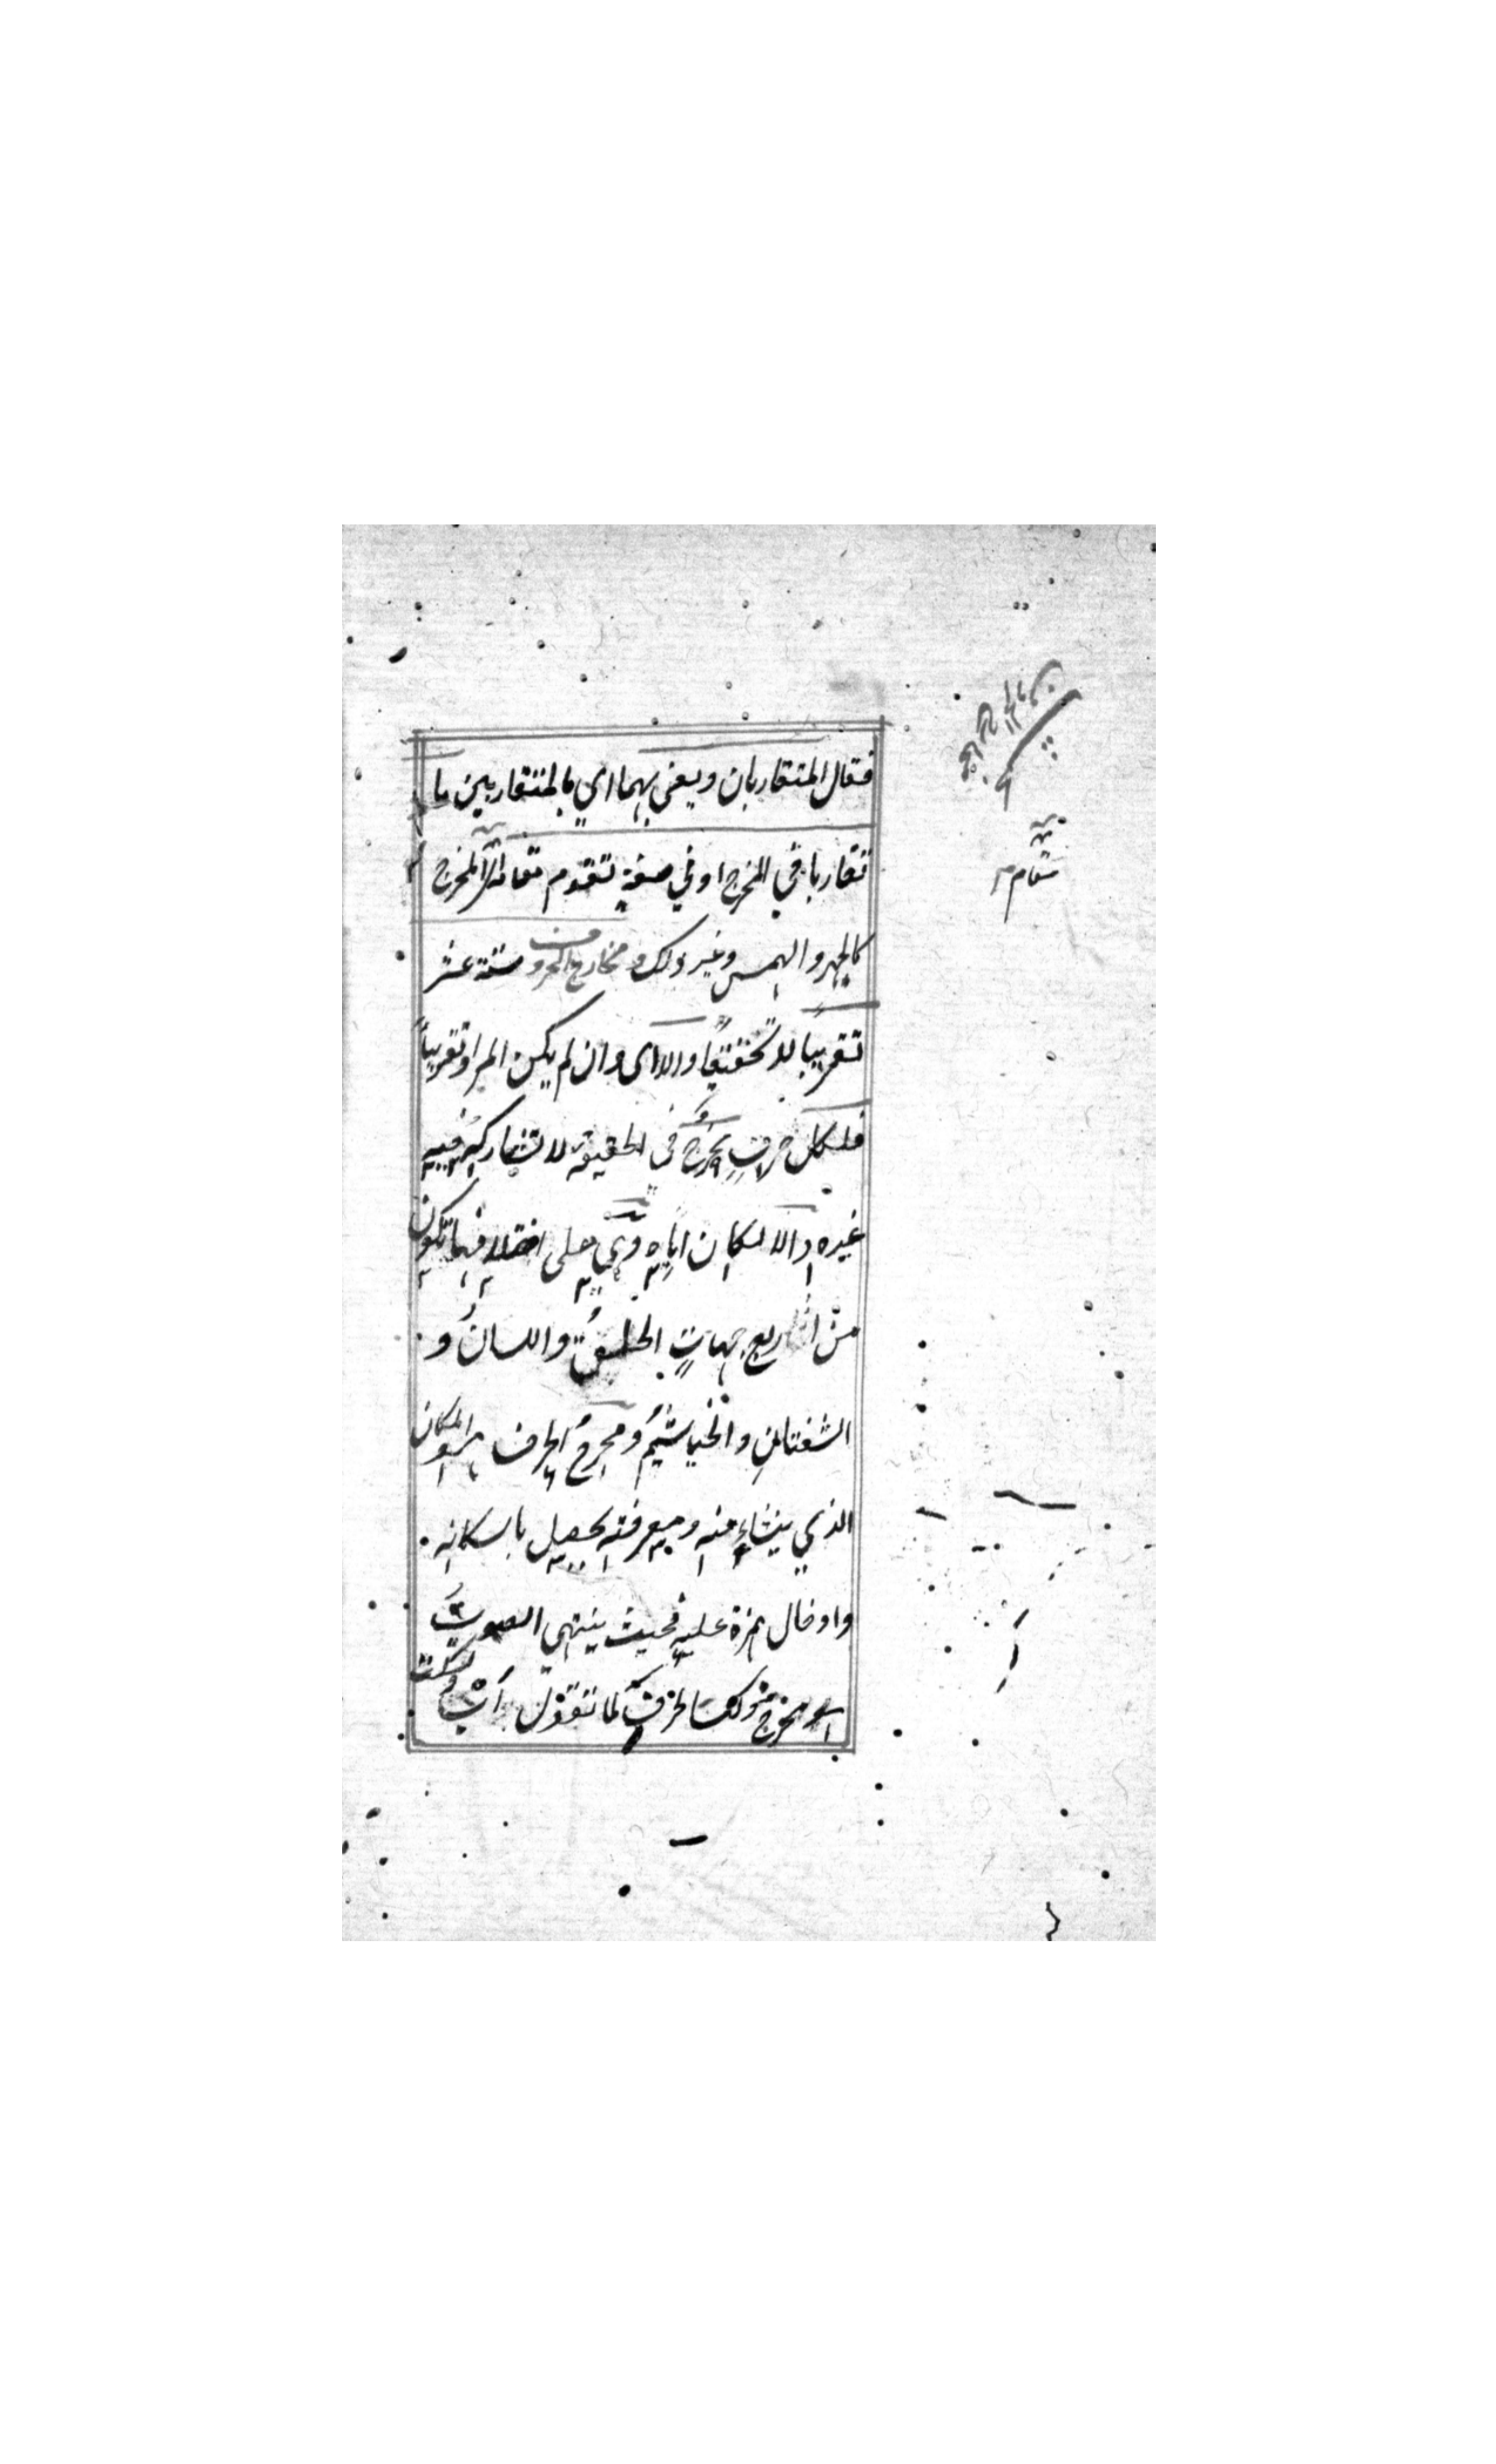 فقال المتقاربان ويعني بهما اي بالمتقاربين ما
تقاربا في المخرج او في صفة تقوم مقام المخرج
كالجهر والهمس وغير ذلك ومخارج الحروف ستة عشر
تقريبا لا تحقيقا والا اى وان لم يكن المراد تقريبا
فلكل حرف مخرج في الحقيقة لا تشاركه فيه
غيره والا لكان اياه وهي على اختلافها تكون
من اربع جهات الحلق واللسان و
الشفتان والخياشيم ومخرج الحرف هو المكان
الذي ينشاء منه ومعرفته يحصل باسكانه
وادخال همزة عليه فحيث ينتهي الصوت
مخرج ذلك الحرف كما تقول اب وسكت
مقام